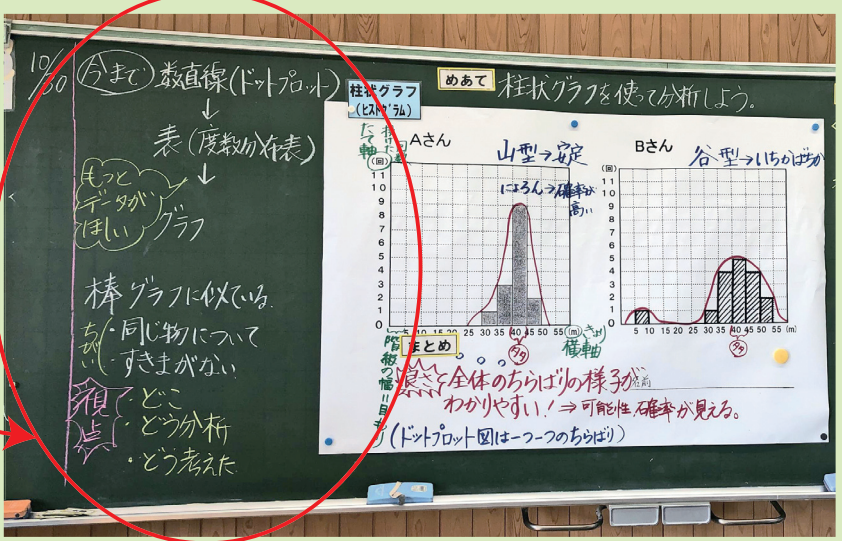 10/30
今まで 数直線(ドットプロット)
↓
表(度数分布表)
↓
もっと
データが
ほしい
グラフ
棒グラフに似ている。
ちがい
・同じ物について
・すきまがない
視点
・どこ
・どう分析
・どう考えた
めあて 柱状グラフを使って分析しよう。
柱状グラフ
(ヒストグラム)
たて軸
Aさん
山型→安定
(回)
11
10
9
8
7
6
5
4
3
2
1
0
5 10 15 20 25 30 35 40 45 50 55 (m)
きょり
横軸
確率が
高い
Bさん
谷型→いちかばちか
(回)
11
10
9
8
7
6
5
4
3
2
1
0
5 10 15 20 25 30 35 40 45 50 55 (m)
階級の幅=目もり
まとめ
良さ 全体のちらばりの様子が
わかりやすい!⇒可能性、確率が見える。
名前
(ドットプロット図は一つ一つのちらばり)